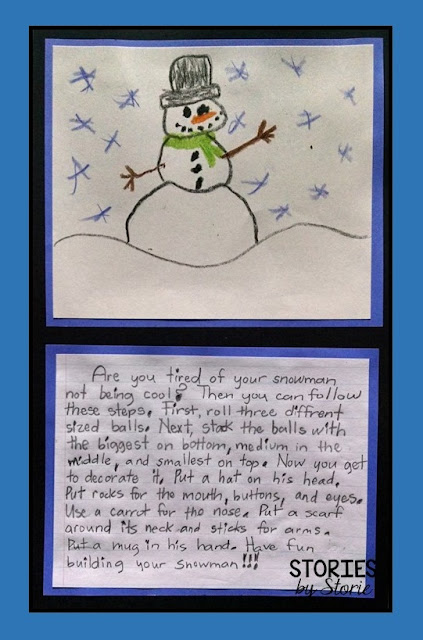 Are you tired of your snowman
not being cool? Then you can follow
these steps. First, roll three diffrent
sized balls. Next, stack the balls with
the biggest on bottom, medium in the
middle, and smallest on top. Now you get
to decorate it. Put a hat on his head.
Put rocks for the mouth, buttons, and eyes.
Use a carrot for the nose. Put a scarf
around its neck and sticks for arms.
Put a mug in his hand. Have fun
building your snowman!!!
STORIES
by Storie